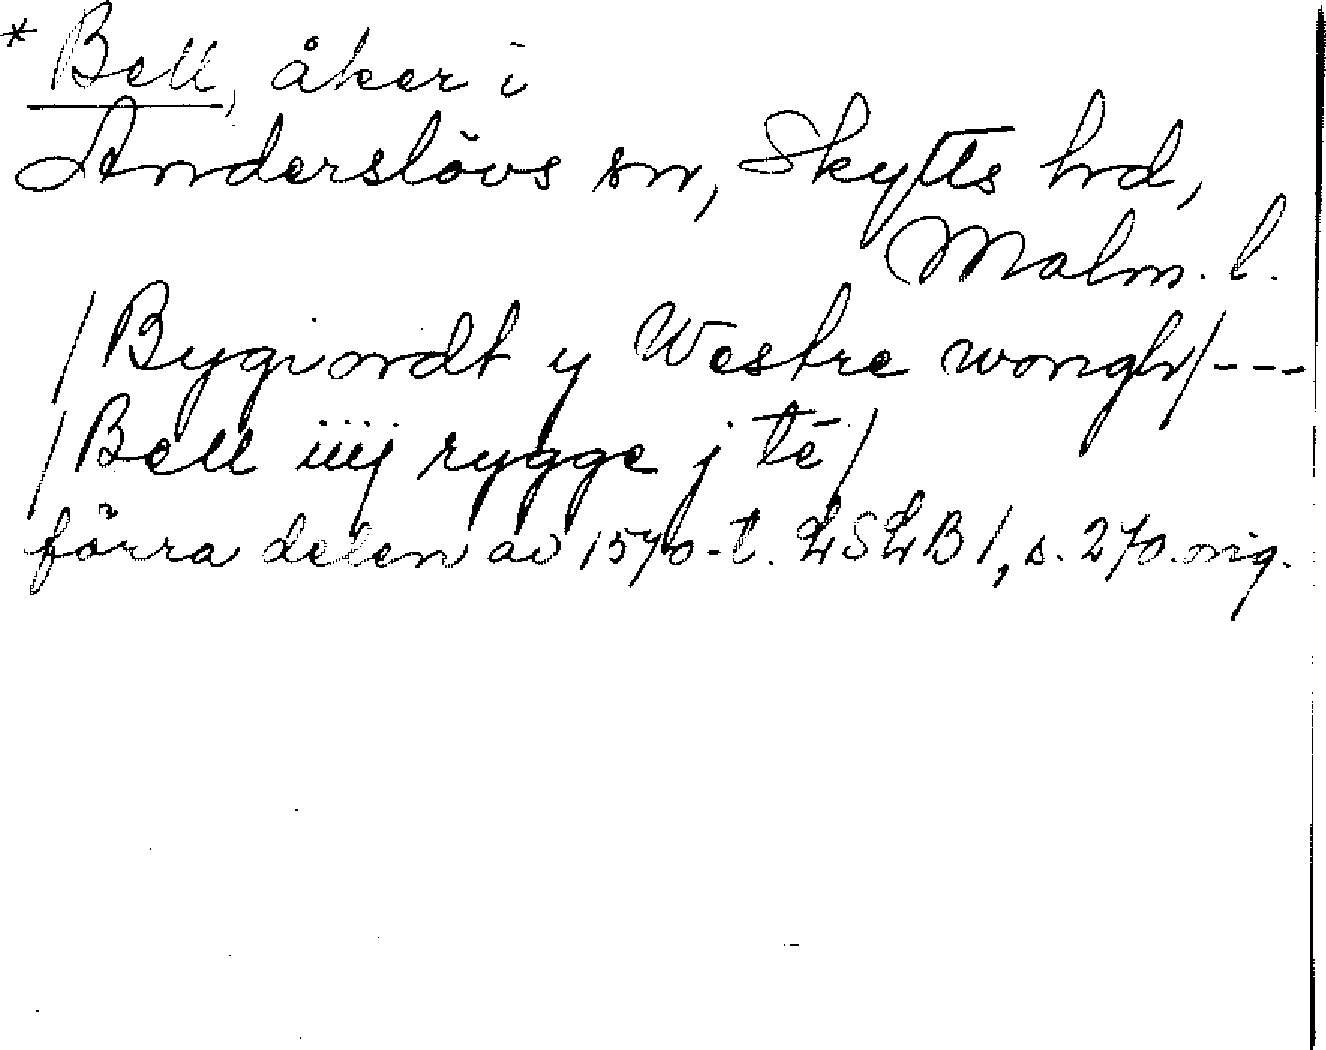 * Bell, åker i
Anderslövs sn, Skytts hd,
Malm. l.
/Bygiordt y Westre wongh/---
/Bell iiij rygge j tē/
förra delen av 1570-t. LSLB 1, s. 270. orig.